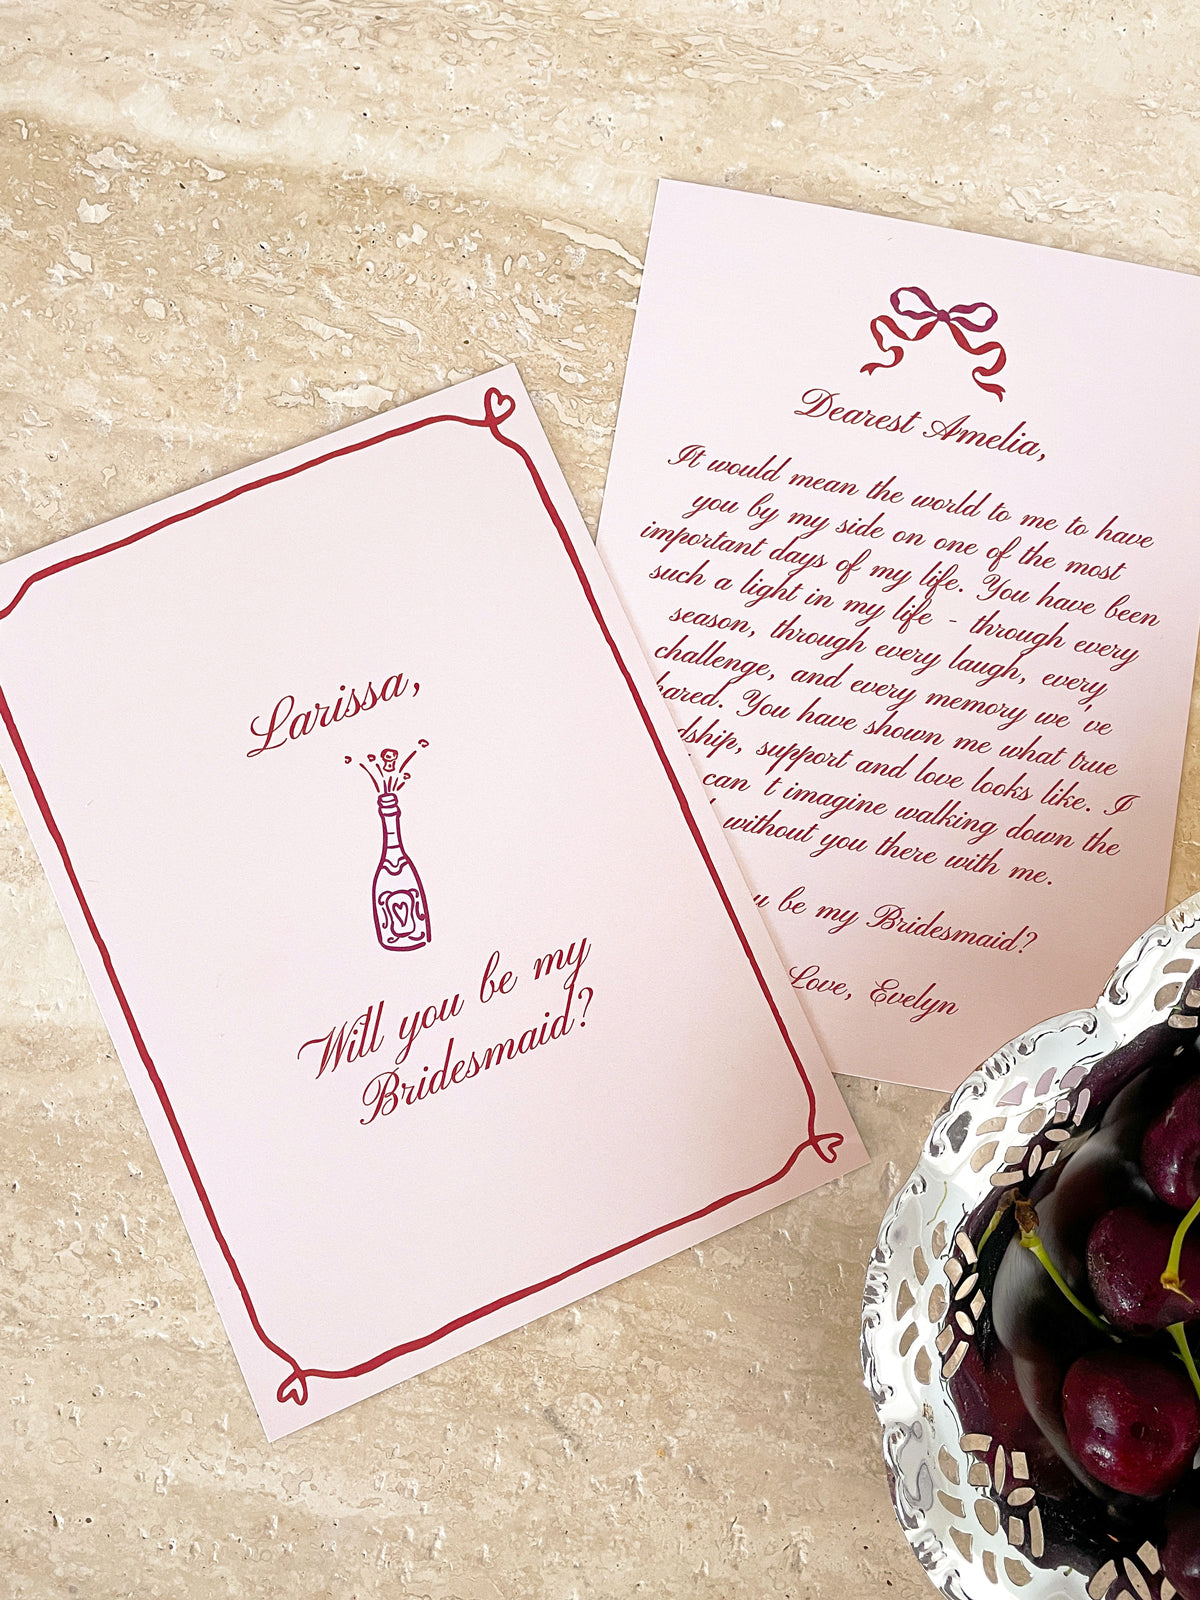 Larissa,
Will you be my
Bridesmaid?
Dearest Amelia,
It would mean the world to me to have
you by my side on one of the most
important days of my life. You have been
such a light in my life - through every
season, through every laugh, every
challenge, and every memory we 've
hared. You have shown me what true
dship, support and love looks like. I
can t imagine walking down the
without you there with me.
u be my Bridesmaid?
Love, Evelyn